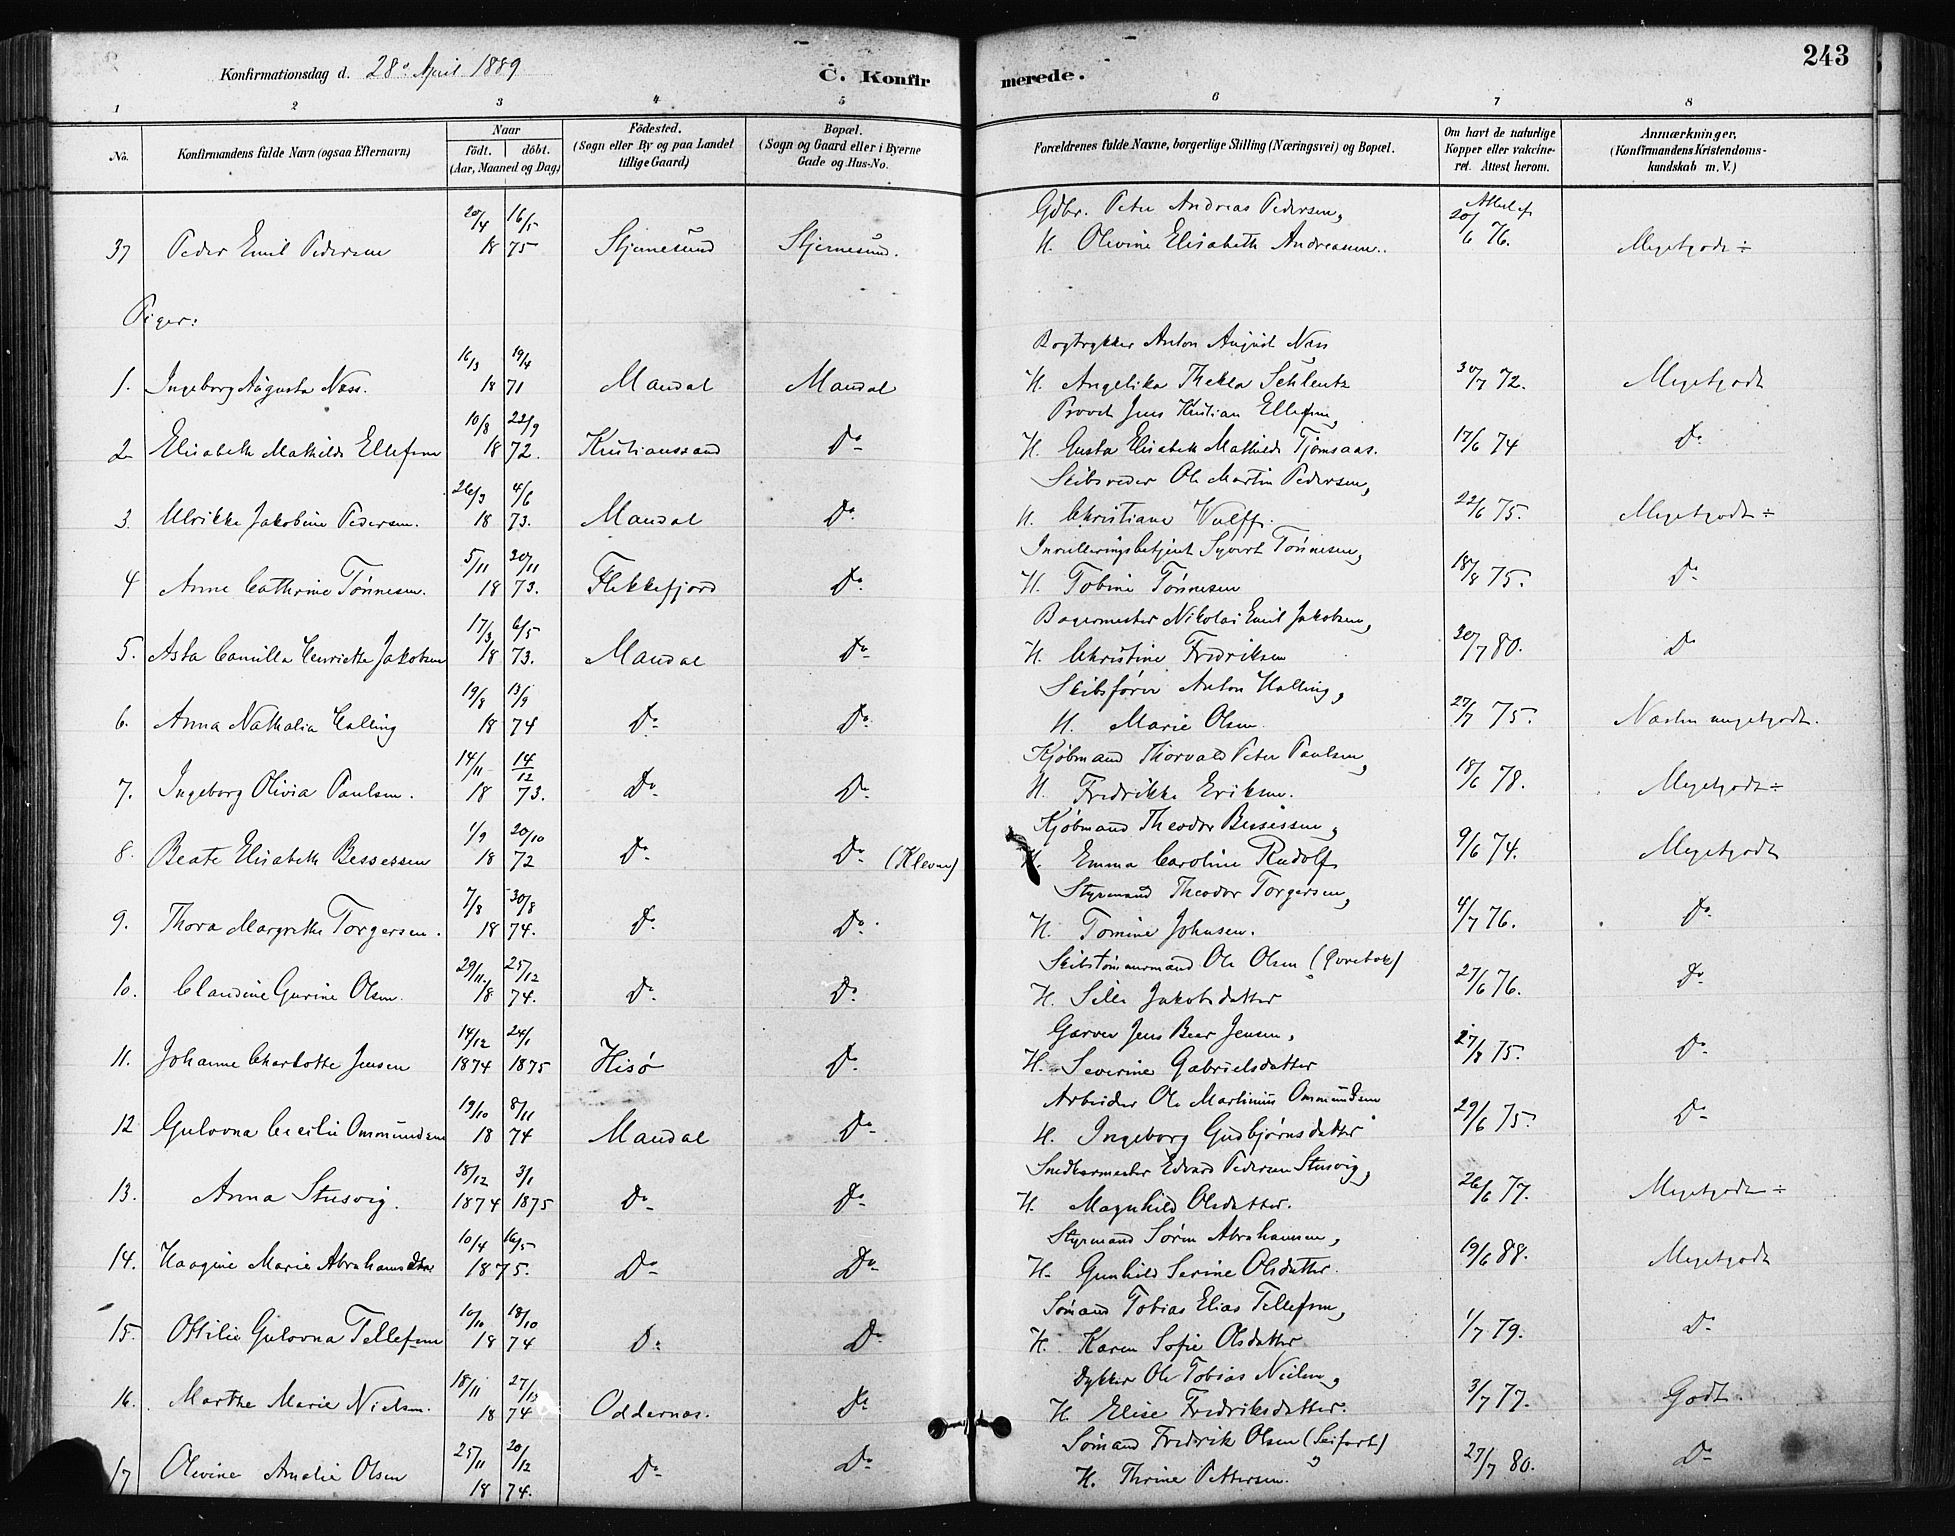 243
Konfirmationsdag d. 28de April 1889
C. Konfir merede.
1 2 3 4 5 6 7 8
No.
Konfirmandens fulde Navn (ogsaa Efternavn)
Naar
födt. döbt.
(Aar, Maaned og Dag)
Födested.
(Sogn eller By og paa Landet
tillige Gaard)
Bopæl.
(Sogn og Gaard eller i Byerne
Gade og Hus-No.
Forældrenes fulde Navne, borgerlige Stilling (Næringsvei) og Bopæl.
Om havt de naturlige
Kopper eller vakcine-
ret. Attest herom.
Anmærkninger,
(Konfirmandens Kristendoms-
kundskab m. V.)
20/4 16/5 Gdbr. Peter Andreas Pedersen, Attest af
37 Peder Emil Pedersen 18 75 Stjernesund Stjernesund. H. Olivine Elisabeth Andreasen. 20/6 76. Megetgodt ÷
Piger:
16/3 19/4 Bogtrykker Anton August Næss
1. Ingeborg Augusta Næss. 18 71 Mandal Mandal H. Angelika Thekla Schlentz 30/7 72. Megetgodt
10/8 22/9 Provst Jens Kristian Ellefsen,
2 Elisabeth Mathilde Ellefsen 18 72. Kristianssand Do H. Gusta Elisabeth Mathilde Tjomsaas. 17/6 74 Do
26/3 4/6 Skibsreder Ole Martin Pedersen,
3. Ulrikke Jakobine Pedersen. 18 73. Mandal Do H. Christiane Wulff. 22/6 75. Megetgodt ÷
5/11 30/11 Inrulleringsbetjent Syvert Tønnesen,
4 Anne Cathrine Tønnesen. 18 73. Flekkefjord Do H. Tobine Tønnesen 18/8 75. Do
17/3 6/5 Bagermester Nikolai Emil Jakobsen,
5. Asta Camilla Henriette Jakobsen 18 73. Mandal Do H. Christine Fredriksen 30/7 80. Do
19/8 13/9 Skibsfører Anton Halling,
6. Anna Nathalia Halling 18 74 Do Do H. Marie Olsen. 27/7 75. Næsten megetgodt.
14/11 14/12 Kjøbmand Thorvald Peter Paulsen,
7. Ingeborg Olivia Paulsen. 18 73. Do Do H. Fredrikke Eriksen. 18/6 78. Megetgodt ÷
1/9 20/10 Kjøbmand Theodor Bessesen,
8. Beate Elisabeth Bessesen 18 72 Do Do (Kleven) H. Emma Caroline Rudolf 9/6 74. Megetgodt
7/8 30/8 Styrmand Theodor Torgersen,
9. Thora Margrethe Torgersen. 18 74. Do Do H. Tomine Johnsen. 4/7 76. Do
29/11 25/12 Skibstømmermand Ole Olsen (Øvrebøe)
10. Claudine Gurine Olsen. 18 74. Do Do H. Sille Jakobsdatter 27/6 76. Do
14/12 24/1 Garver Jens Beer Jensen,
11. Johanne Charlotte Jensen 1874 1875 Hisø Do H. Severine Gabrielsdatter 27/8 75. Do
19/10 8/11 Arbeider Ole Martinius Ommundsen
12 Gulovna Cecilie Ommundsen 18 74 Mandal Do H. Ingeborg Gudbjørnsdatter 29/6 75. Do
18/12 3/1 Snedkermester Edvard Pedersen Stusvig,
13. Anna Stusvig. 1874 1875 Do Do H. Magnhild Olsdatter. 26/6 77. Megetgodt ÷
10/4 16/5 Styrmand Søren Abrahamsen,
14. Haagine Marie Abrahamsdtr 1875. Do Do H. Gunhild Serine Olsdatter. 19/6 88. Megetgodt
10/10 18/10 Sømand Tobias Elias Tellefsen,
15. Ottilie Gulovna Tellefsen 18 74 Do Do H. Karen Sofie Olsdatter 1/7 79. Do
18/11 27/12 Dykker Ole Tobias Nielsen,
16. Marthe Marie Nielsen. 18 74 Oddernæs. Do H. Elise Fredriksdatter. 3/7 77. Godt
25/11 20/12 Sømand Fredrik Olsen (Seifart)
17 Olevine Amalie Olsen 18 74. Do Do H. Thrine Pettersen. 27/7 80. Do